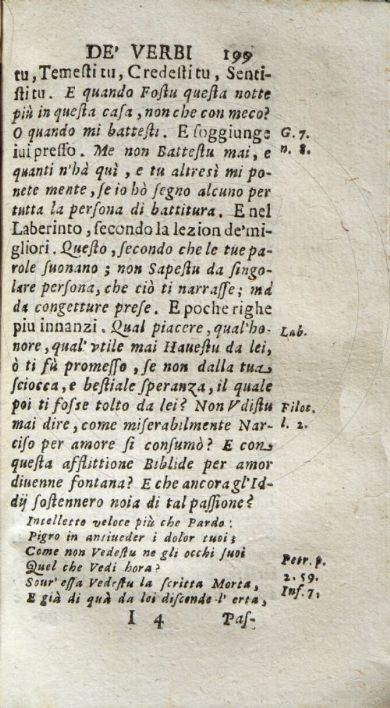 DE' VERBI 199
tu, Temesti tu, Credesti tu, Senti-
sti tu. E quando Fostu questa notte
più in questa casa, non che con meco?
O quando mi battesti. E soggiunge G. 7.
iui presso. Me non Battestu mai, e n. 8.
quanti n'hà quì, e tu altresì mi po-
nete mente, se io hò segno alcuno per
tutta la persona di battitura. E nel
Laberinto, secondo la lezion de' mi-
gliori. Questo, secondo che le tue pa-
role suonano; non Sapestu da singo-
lare persona, che ciò ti narrasse; ma
da congetture prese. E poche righe
piu innanzi. Qual piacere, qual'ho- Lab.
nore, qual' vtile mai Hauestu da lei,
ò ti fù promesso, se non dalla tua
sciocca, e bestiale speranza, il quale
poi ti fosse tolto da lei? Non Vdistu Filoc.
mai dire, come miserabilmente Nar- l. 2.
ciso per amore si consumò? E con
questa afflittione Biblide per amor
diuenne fontana? E che ancora gl'Id-
dij sostennero noia di tal passione?
Intelletto veloce più che Pardo:
Pigro in antiueder i dolor tuoi;
Come non Vedestu ne gli occhi suoi Petr. p.
Quel che Vedi hora? 2. 59.
Sour' essa Vedestu la scritta Morta, Inf. 7.
E già di quà da lei discende l' erta,
I 4 Pas-